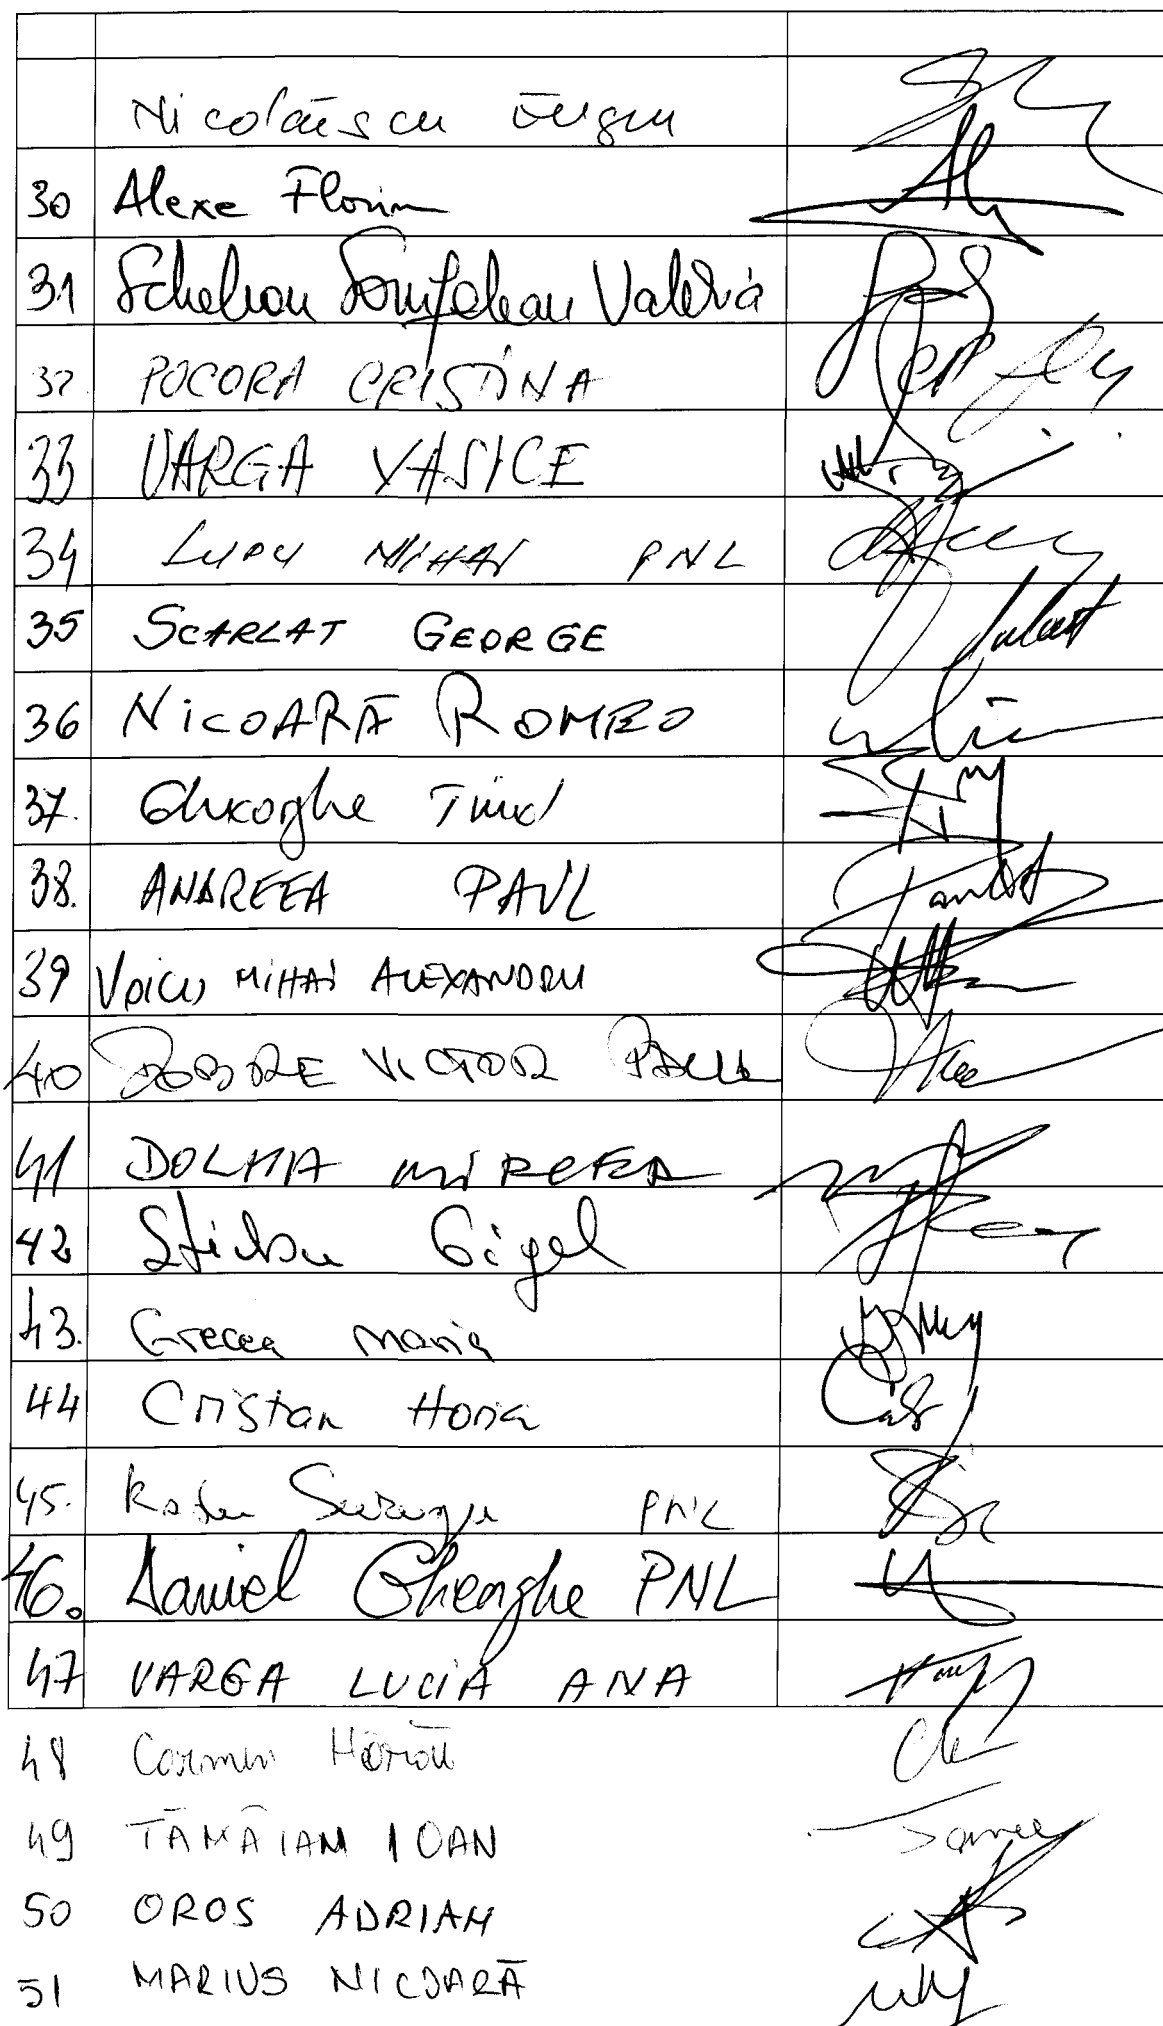 Nicolăescu Eugen
30 Alexe Florin
31 Schelean Șomfelean Valeria
32 POCORA CRISTINA
33 VARGA VASILE
34 LUPU MIHAI PNL
35 SCARLAT GEORGE
36 NICOARĂ ROMEO
37. Gheorghe Tinel
38. ANDREEA PAUL
39 Voicu MIHAI ALEXANDRU
40 DOBRE VICTOR PAUL
41 DOLHA MIRCEA
42 Știrbu Gigel
43. Grecea Maria
44 Cristian Horia
45. Surugiu PNL
46. Daniel Gheorghe PNL
47 VARGA LUCIA ANA
48 Carmen
49 TĂMÂIAN IOAN
50 OROS ADRIAN
51 MARIUS NICOARĂ